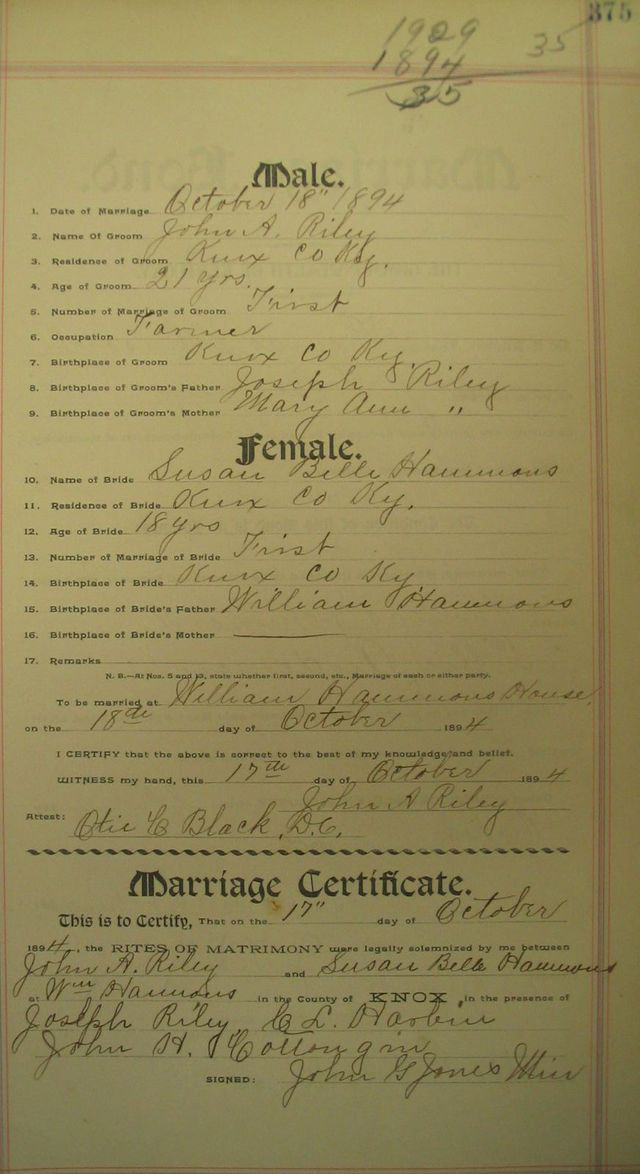 375
1909 35
1894
35
Male.
1. Date of Marriage October 18" 1894
2. Name Of Groom John A. Riley
3. Residence of Groom Knox Co Ky.
4. Age of Groom 21 yrs.
5. Number of Marriage of Groom First
6. Occupation Farmer
7. Birthplace of Groom Knox Co Ky.
8. Birthplace of Groom's Father Joseph Riley
9. Birthplace of Groom's Mother Mary Ann "
Female.
10. Name of Bride Susan Belle Hammons
11. Residence of Bride Knox Co Ky.
12. Age of Bride 18 yrs
13. Number of Marriage of Bride First
14. Birthplace of Bride Knox Co Ky
15. Birthplace of Bride's Father William Hammons
16. Birthplace of Bride's Mother
17. Remarks
N. B.—At Nos. 5 and 13, state whether first, second, etc., Marriage of each or either party.
To be married at William Hammons House,
on the 18th day of October 1894
I CERTIFY that the above is correct to the best of my knowledge and belief.
WITNESS my hand, this 17th day of October 1894
John A Riley
Attest: Black, D.C.
Marriage Certificate.
This is to Certify, That on the 17" day of October
1894, the RITES OF MATRIMONY were legally solemnized by me between
John A. Riley and Susan Belle Hammons
at Wm Hammons in the County of KNOX, in the presence of
Joseph Riley, C L. Harbin
John H. Collongin
SIGNED: John G Jones Min